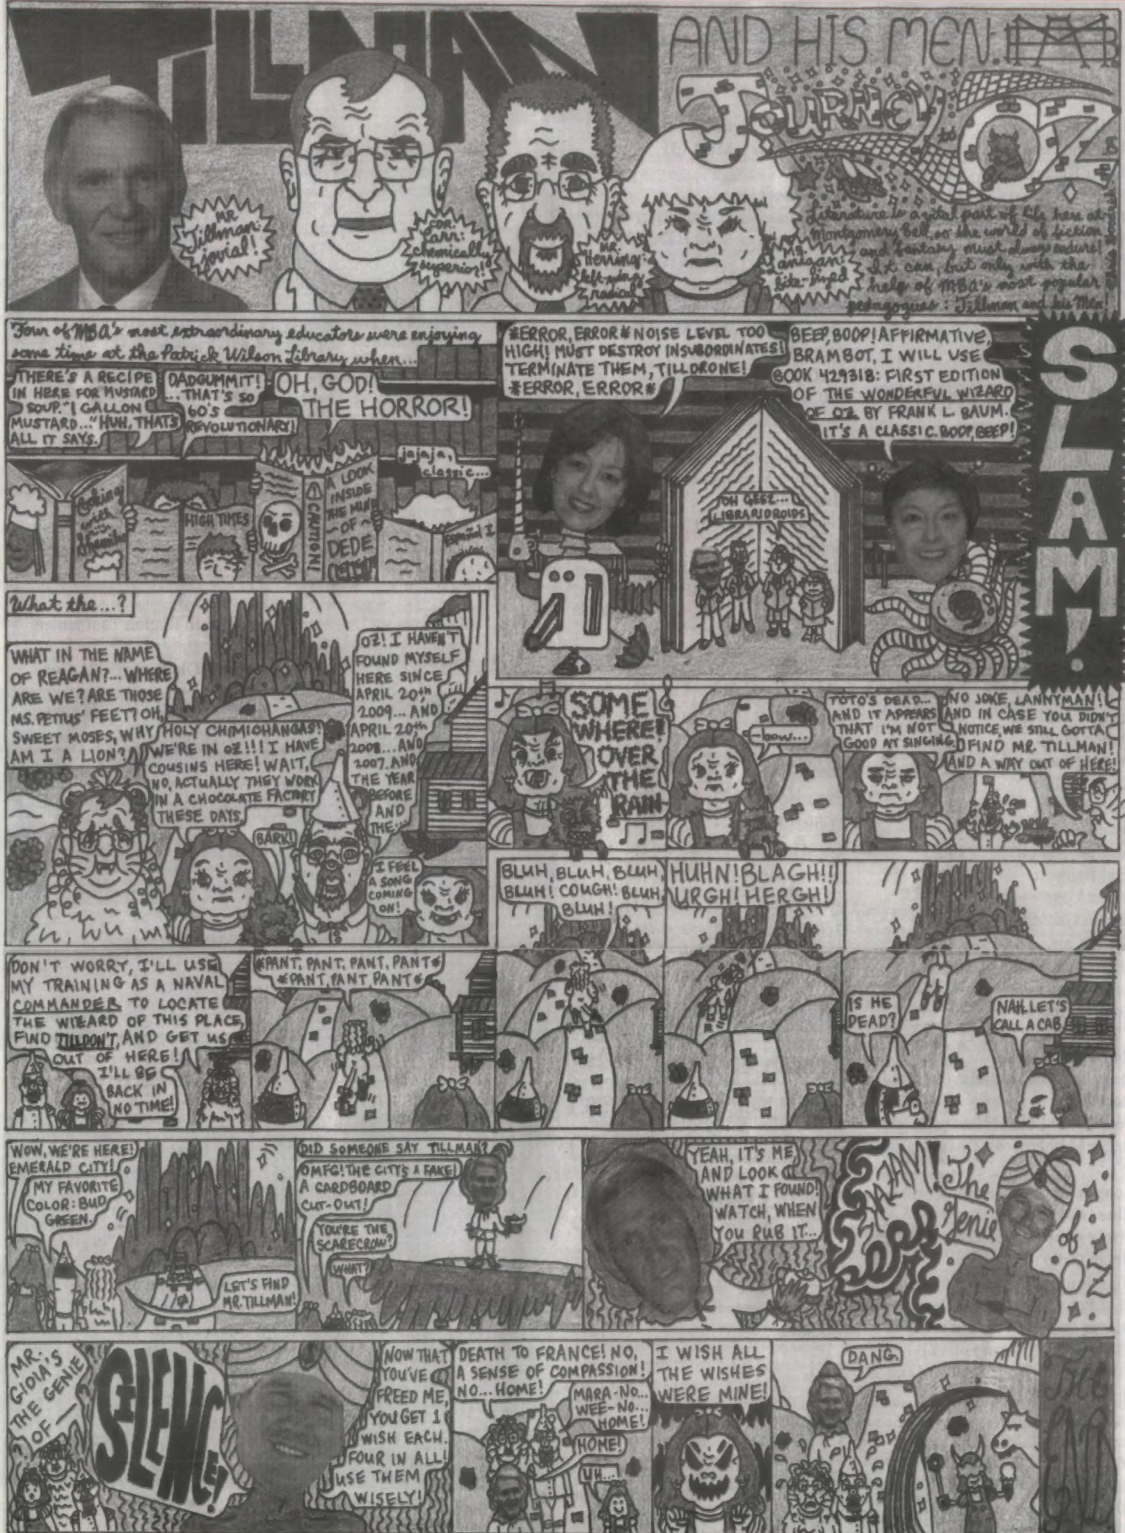 TILLMAN
AND HIS MEN:
JOURNEY
to
OZ
MR.
Tillman:
jovial!
Carr:
chemically
superior!
MR.
Herring:
left-wing
radical
bite-sized
Literature is a vital part of life here at
Montgomery Bell, so the world of fiction
and fantasy must always endure!
It can, but only with the
help of MBA's most popular
pedagogues: Tillman and his Men!
Four of MBA's most extraordinary educators were enjoying
some time at the Patrick Wilson Library when...
THERE'S A RECIPE
IN HERE FOR MUSTARD
SOUP. "1 GALLON
MUSTARD..." HUH, THAT'S
ALL IT SAYS.
DADGUMMIT!
...THAT'S SO
60'S
REVOLUTIONARY!
OH, GOD!
THE HORROR!
jajaja,
classic...
Cooking
with
HIGH TIMES
CAUTION!
A LOOK
INSIDE
THE MIND
-OF-
DEDE
Español I
*ERROR, ERROR* NOISE LEVEL TOO
HIGH! MUST DESTROY INSUBORDINATES!
TERMINATE THEM, TILLDRONE!
*ERROR, ERROR*
BEEP, BOOP! AFFIRMATIVE,
BRAMBOT, I WILL USE
BOOK 429318: FIRST EDITION
OF THE WONDERFUL WIZARD
OF OZ BY FRANK L. BAUM.
IT'S A CLASSIC. BOOP, BEEP!
OH GEEZ...
LIBRARIDROIDS
SLAM!
What the...?
WHAT IN THE NAME
OF REAGAN?... WHERE
ARE WE? ARE THOSE
MS. PETTUS' FEET? OH,
SWEET MOSES, WHY
AM I A LION?
HOLY CHIMICHANGAS!
WE'RE IN OZ!!! I HAVE
COUSINS HERE! WAIT,
NO, ACTUALLY THEY WORK
IN A CHOCOLATE FACTORY
THESE DAYS.
BARK!
OZ! I HAVEN'T
FOUND MYSELF
HERE SINCE
APRIL 20th
2009... AND
APRIL 20th
2008... AND
2007. AND
THE YEAR
BEFORE
AND
THE...
I FEEL
A SONG
COMING
ON!
SOME
WHERE!
OVER
THE
RAIN-
-bow...
TOTO'S DEAD...
AND IT APPEARS
THAT I'M NOT
GOOD AT SINGING.
NO JOKE, LANNYMAN!
AND IN CASE YOU DIDN'T
NOTICE, WE STILL GOTTA
FIND MR. TILLMAN!
AND A WAY OUT OF HERE!
DON'T WORRY, I'LL USE
MY TRAINING AS A NAVAL
COMMANDER TO LOCATE
THE WIZARD OF THIS PLACE,
FIND TILLDON'T, AND GET US
OUT OF HERE!
I'LL BE
BACK IN
NO TIME!
*PANT, PANT, PANT, PANT*
*PANT, PANT, PANT*
BLUH, BLUH, BLUH,
BLUH! COUGH! BLUH,
BLUH!
HUHN! BLAGH!!
URGH! HERGH!
IS HE
DEAD?
NAH, LET'S
CALL A CAB.
WOW, WE'RE HERE!
EMERALD CITY!
MY FAVORITE
COLOR: BUD
GREEN.
LET'S FIND
MR. TILLMAN!
DID SOMEONE SAY TILLMAN?
OMFG! THE CITY'S A FAKE!
A CARDBOARD
CUT-OUT!
YOU'RE THE
SCARECROW?
WHAT?
YEAH, IT'S ME
AND LOOK
WHAT I FOUND!
WATCH, WHEN
YOU RUB IT...
The
Genie
of
OZ
MR.
GIOIA'S
THE GENIE
OF—
SILENCE!
NOW THAT
YOU'VE
FREED ME,
YOU GET 1
WISH EACH.
FOUR IN ALL!
USE THEM
WISELY!
DEATH TO FRANCE! NO,
A SENSE OF COMPASSION!
NO... HOME!
MARA-NO...
WEE-NO...
HOME!
HOME!
UH...
I WISH ALL
THE WISHES
WERE MINE!
DANG.
THE
END